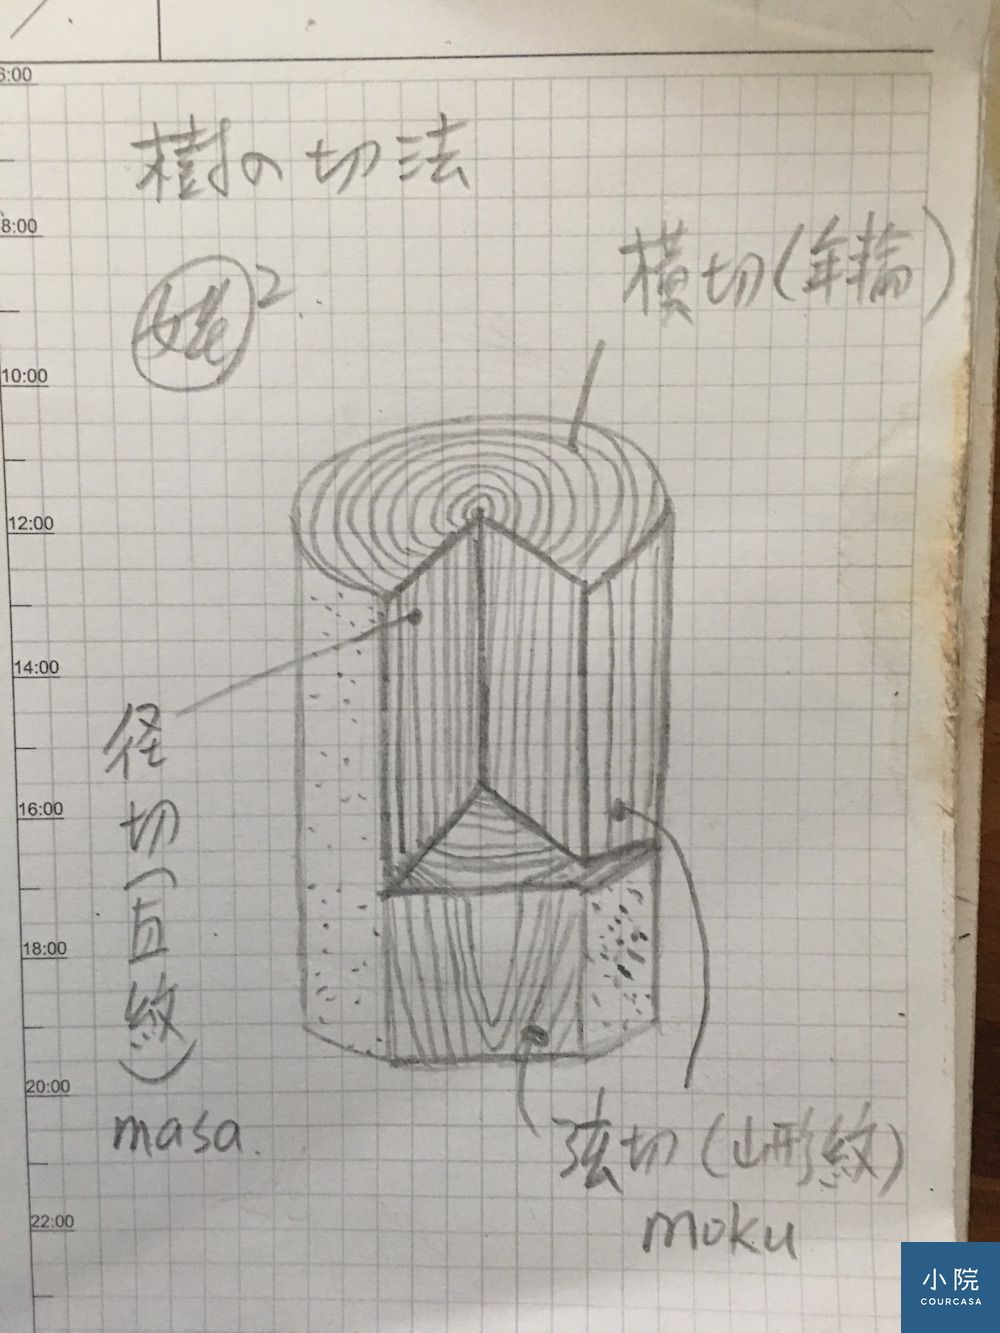 6:00
樹の切法
8:00
横切(年輪)
姥2
10:00
12:00
14:00
径切(直紋)
16:00
18:00
20:00
masa.
弦切(山形紋)
moku
22:00
小院
COURCASA